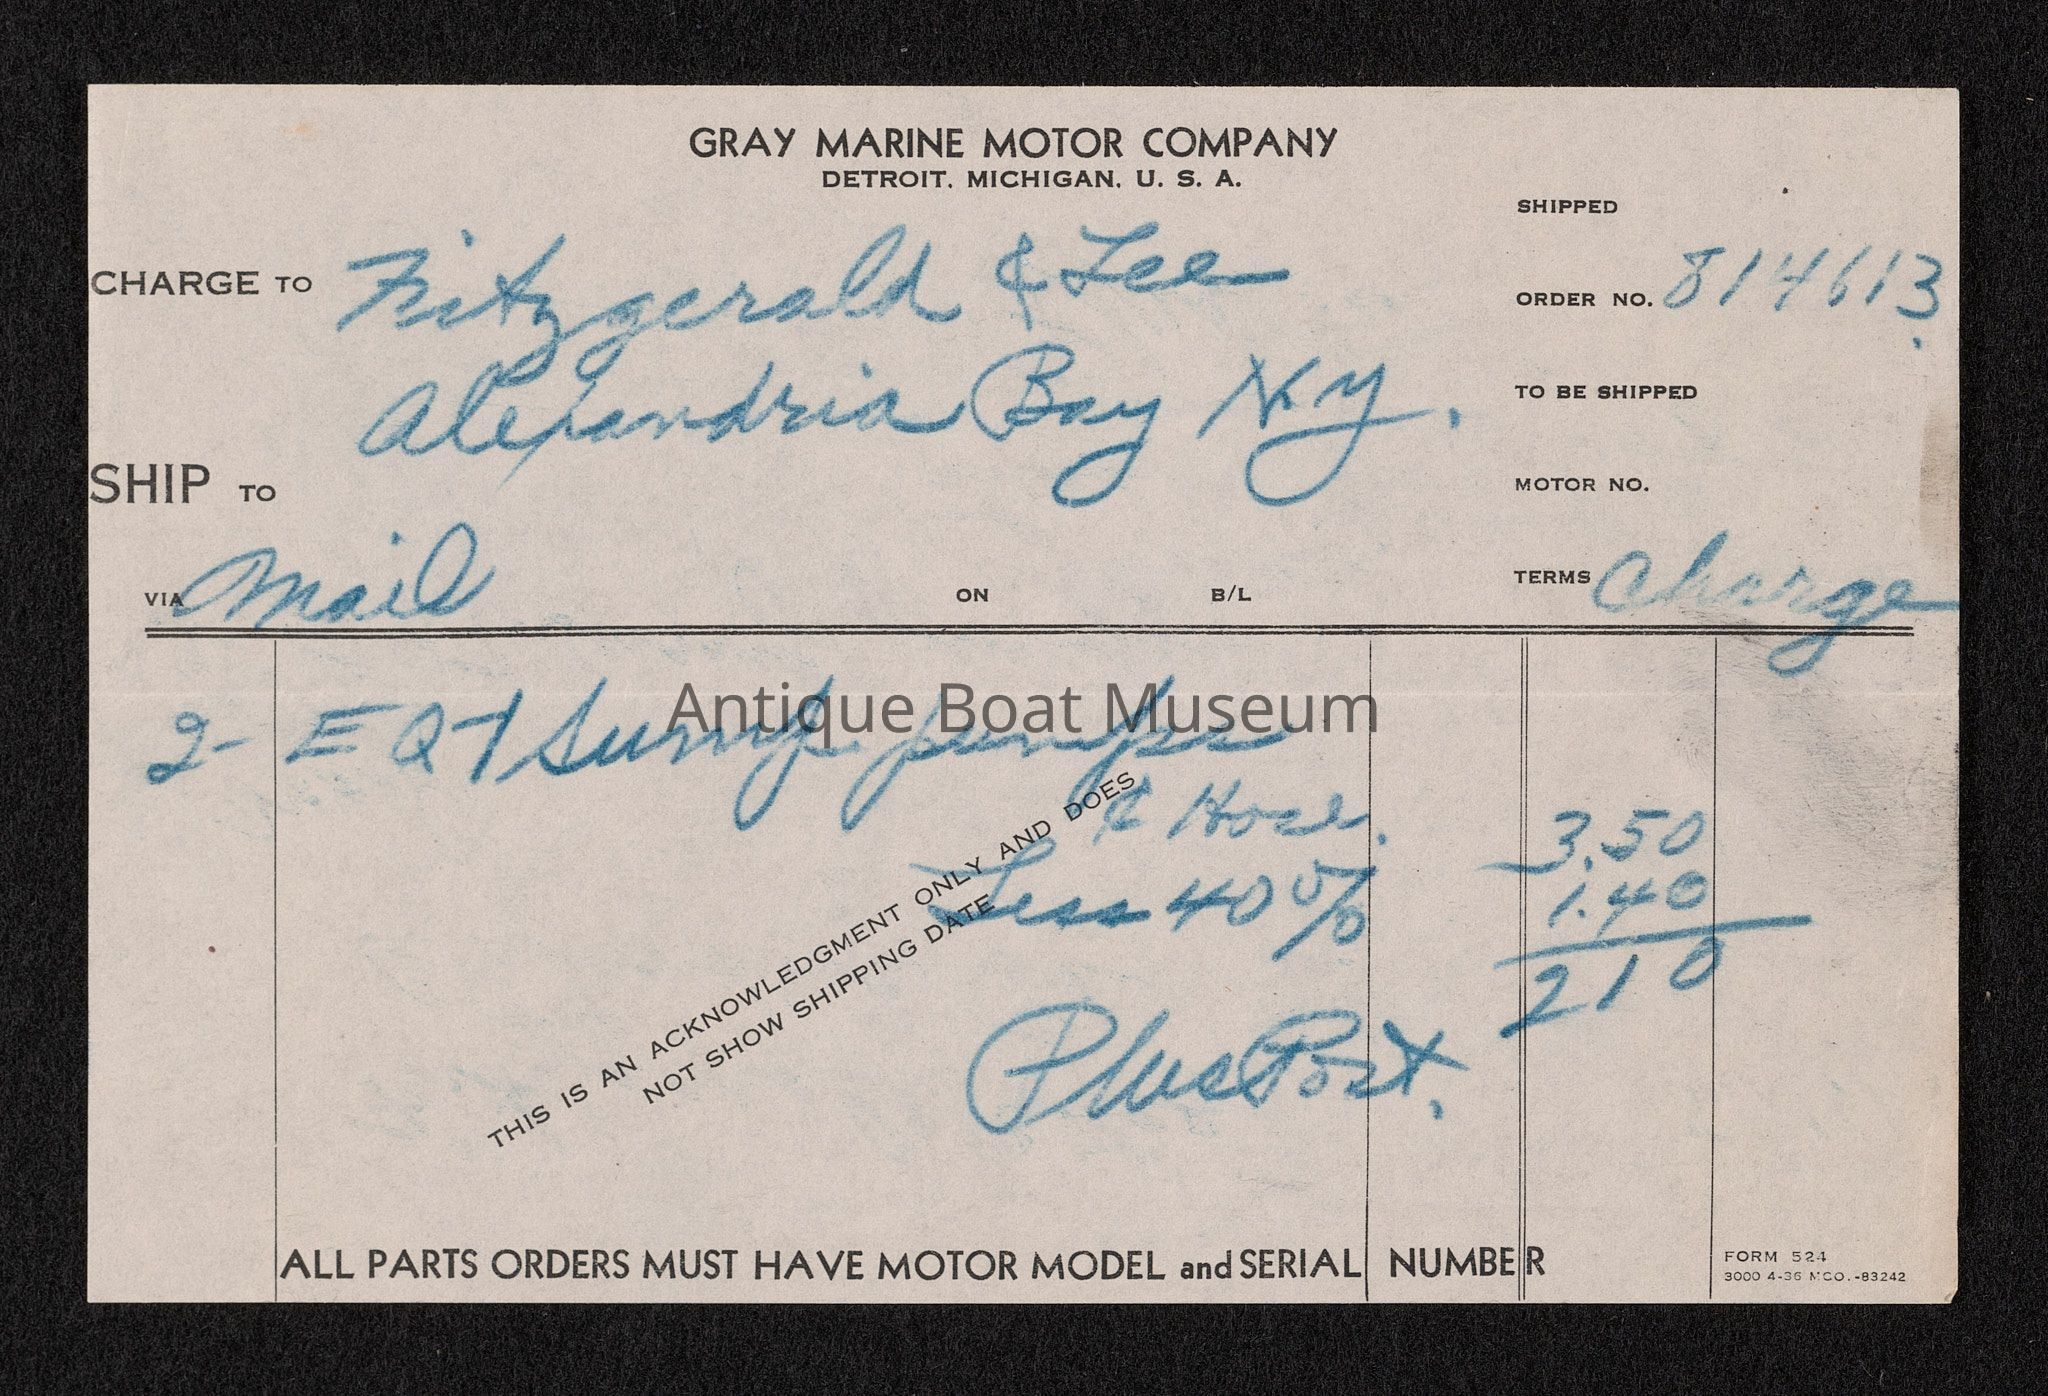 GRAY MARINE MOTOR COMPANY
DETROIT, MICHIGAN, U. S. A.
SHIPPED
CHARGE TO Fitzgerald & Lee
ORDER NO. 814613.
Alexandria Bay N.Y.
TO BE SHIPPED
SHIP TO
MOTOR NO.
VIA Mail ON B/L
TERMS Charge
Antique Boat Museum
2- EQ7 Sump pumps
& Hose. 3.50
Less 40% 1.40
210
Plus Post.
THIS IS AN ACKNOWLEDGMENT ONLY AND DOES
NOT SHOW SHIPPING DATE
ALL PARTS ORDERS MUST HAVE MOTOR MODEL and SERIAL NUMBER
FORM 524
3000 4-36 MCO.-83242